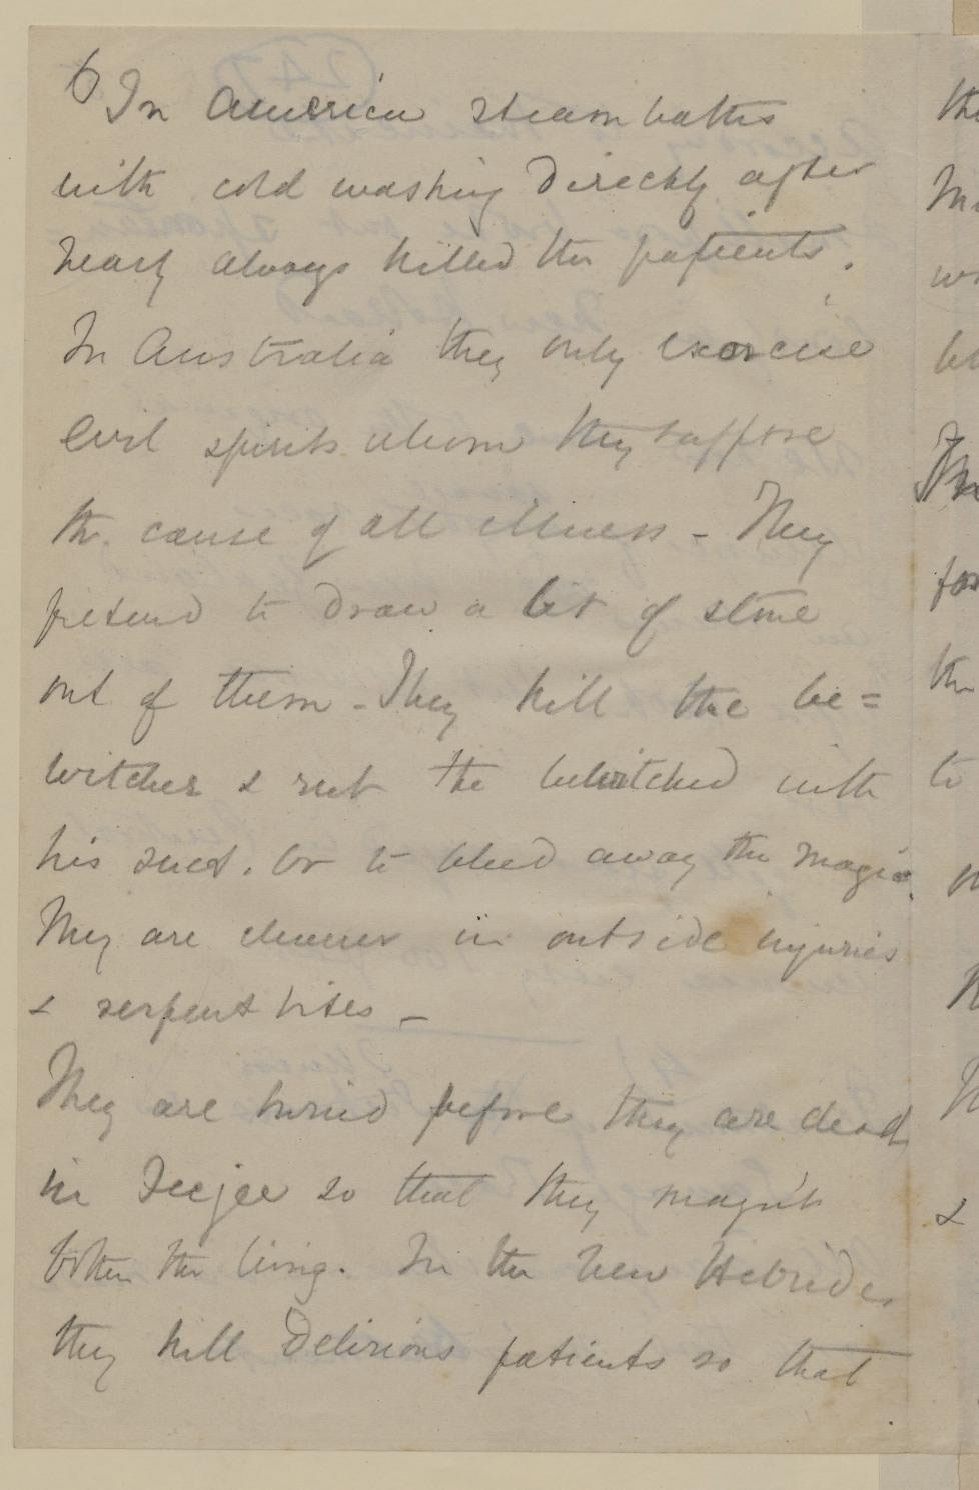 6 In America steam baths
with cold washing directly after
nearly always killed the patients.
In Australia they only exorcise
evil spirits whom they suppose
the cause of all illness - They
pretend to draw a bit of stone
out of them - They kill the be=
witcher & rub the bewitched with
his suet. Or to bleed away the magic.
They are cleverer in outside injuries
& serpent bites -
They are buried before they are dead
in Feejee so that they mayn't
bother the living. In the New Hebrides
they kill delirious patients so that